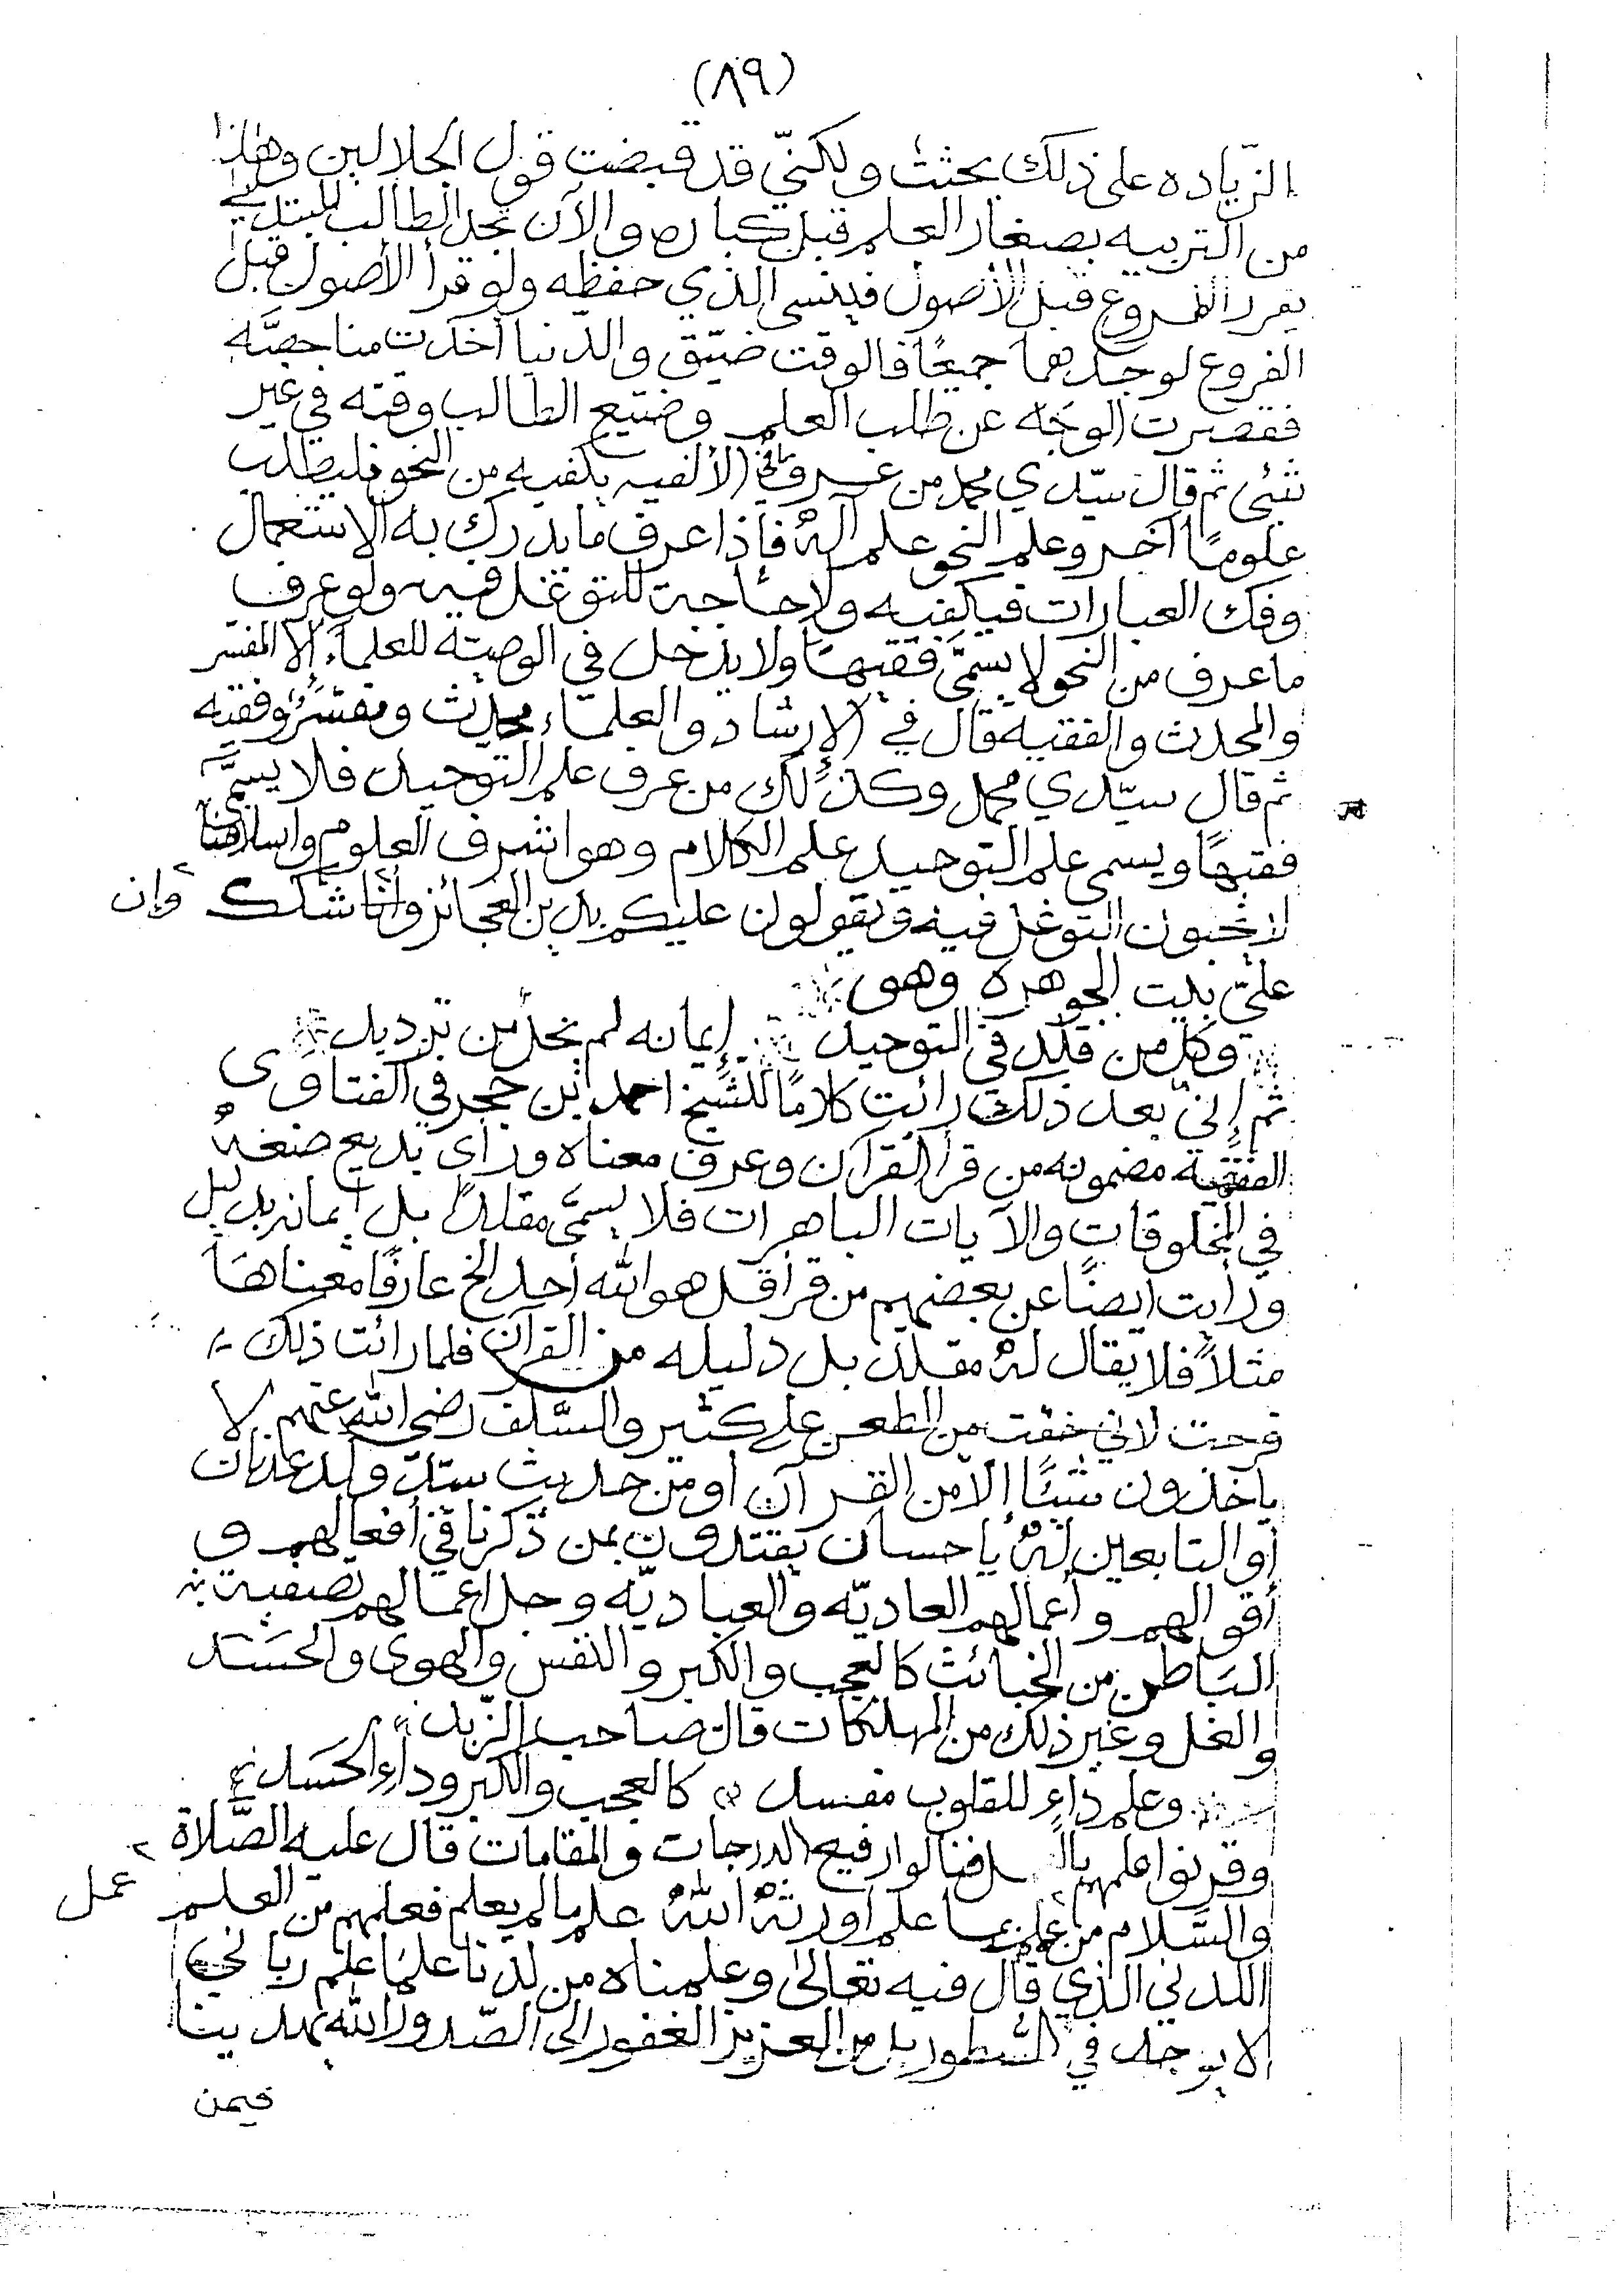 (٨٩)
الزّياده على ذلك بحثت ولكنّي قد قبضت قول الجلالين وهٰذا
من التربيه بصغار العلم قبل كباره والآن تجد الطالب المبتدئ
يقرء الفروع قبل الأصول فينسى الذي حفظه ولو قرأ الأصول قبل
الفروع لوجدهما جميعًا فالوقت ضيّق والدّنيا أخذت منا حصّه
فقصرت الوجَه عن طلب العلم وضيّع الطالب وقته في غير
شئى ثم قال سيّدي محمد من عرف مافي الألفيه يكفيه من النحو فليطلب
علومًا آخر وعلم النحو علم آلهْ فإذا عرف ما يدرك به الإستعمال
وفك العبارات فيكفيه ولا حاجة للتوغل فيه ولو عرف
ما عرف من النحو لا يسمَّى فقيهًا ولا يدخل في الوصيّه للعلمآء إلا المفسر
والمحدث والفقيه قال في الإرشاد والعلماء محدث ومفسّر وفقيه
ثم قال سيّدي محمد وكذلك من عرف علم التوحيد فلا يسمَّى
فقيهًا ويسمى علم التوحيد علم الكلام وهو اشرف العلوم واسلافنا
لا يحبون التوغل فيه ويقولون عليكم بدين العجائز وأنا شكك وإن
عليّ بيت الجوهره وهو
وكل من قلّد في التوحيد إيمانه لم يخل من ترديد
ثم إنيّ بعد ذلك رائت كلامًا للشيخ احمد ابن حجر في الفتاوى
الفقهيّه مضمونه من قرأ القرآن وعرف معناه ورأى بديع صنعه
في المخلوقات والآيات الباهرات فلا يسمَّى مقلدًا بل إيمانه بدليل
ورأيت ايضًا عن بعضهم من قرأ قل هو الله أحد الخ عارفًا معناهَا
مثلاً فلا يقال لهْ مقلد بل دليله من القرآن فلما رائت ذلك
فرحت لاني خفت من الطعن على كثير والسَّلف رضي الله عنهم لا
ياخذون شيئًا إلا من القرآن أو من حديث سيّد ولد عدنان
أو التابعين لهْ بإحسان يقتدون بمن ذكرنا في أفعالهم و
أقوالهم وأعمالهم العاديّه والعباديّه وجل اعمالهم تصفية
البَاطن من الخبائث كالعجب والكبر والنفس والهوى والحسَد
والغل وغير ذلك من المهلكات قال صاحب الزّبد
وعلم داءٍ للقلوب مفسد كالعجب والكبر وداءِ الحسَد
وقرنوا علمهم بالعمل فنالوا رفيع الدرجات والمقامات قال عليه الصَّلاة
والسَّلام من عمل بما علم اورثهُ اللّهُ علم ما لم يعلم فعلمهم من العلم
اللدني الذي قال فيه تعالى وعلمناه من لدنا علمًا علم رباني
لا يوجد في السطور بل من العزيز الغفور إلى الصّدور الله يهدينا
فيمن